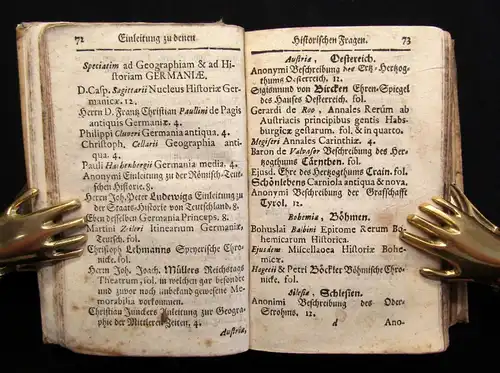 72 Einleitung zu denen
Speciatim ad Geographiam & ad Hi-
storiam GERMANIÆ,
D. Casp. Sagittarii Nucleus Historiæ Ger-
manicæ. 12.
Herrn D. Frantz Christian Paullini de Pagis
antiquis Germaniæ. 4.
Philippi Cluveri Germania antiqua. 4.
Christoph. Cellarii Geographia anti-
qua. 4.
Pauli Hachenbergii Germania media. 4.
Anonymi Einleitung zu der Römisch-Teut-
schen Historie. 8.
Herrn Joh. Peter Ludewigs Einleitung zu
der Staats-Historie von Teutschland. 8.
Eben desselben Germania Princeps. 8.
Martini Zeileri Itinerarium Germaniæ,
Teutsch. fol.
Christoph Lehmanns Speyerische Chro-
nicke. fol.
Herrn Joh. Joach. Müllers Reichstags
Theatrum, fol. in welchen gar besonder
und zuvor unbekand gewesene Me-
morabilia vorkommen.
Christian Junckers Anleitung zur Geogra-
phie der Mittlern Zeiten. 4.
Austriæ,
Historischen Fragen. 73
Austriæ, Oesterreich.
Anonymi Beschreibung des Ertz-Hertzog-
thums Oesterreich. 12.
Sigismund von Biecken Ehren-Spiegel
des Hauses Oesterreich. fol.
Gerardi de Roo, Annales Rerum ab
Austriacis principibus gentis Habs-
burgicæ gestarum. fol. & in quarto.
Megiseri Annales Carinthiæ. 4.
Baron de Valvasor Beschreibung des Her-
tzogthums Cärnthen. fol.
Ejusd. Ehre des Hertzogthums Crain. fol.
Schönlebens Carniola antiqua & nova.
Anonymi Beschreibung der Graffschafft
Tyrol. 12.
Bohemiæ, Böhmen.
Bohuslai Balbini Epitome Rerum Bo-
hemicarum Historica.
Ejusdem Miscellaoea Historiæ Bohe-
micæ.
Hagecii & Petri Böckler Böhmische Chro-
nicke. fol.
Silesiæ, Schlesien.
Anonimi Beschreibung des Oder-
Strohms. 12.
d Ano-